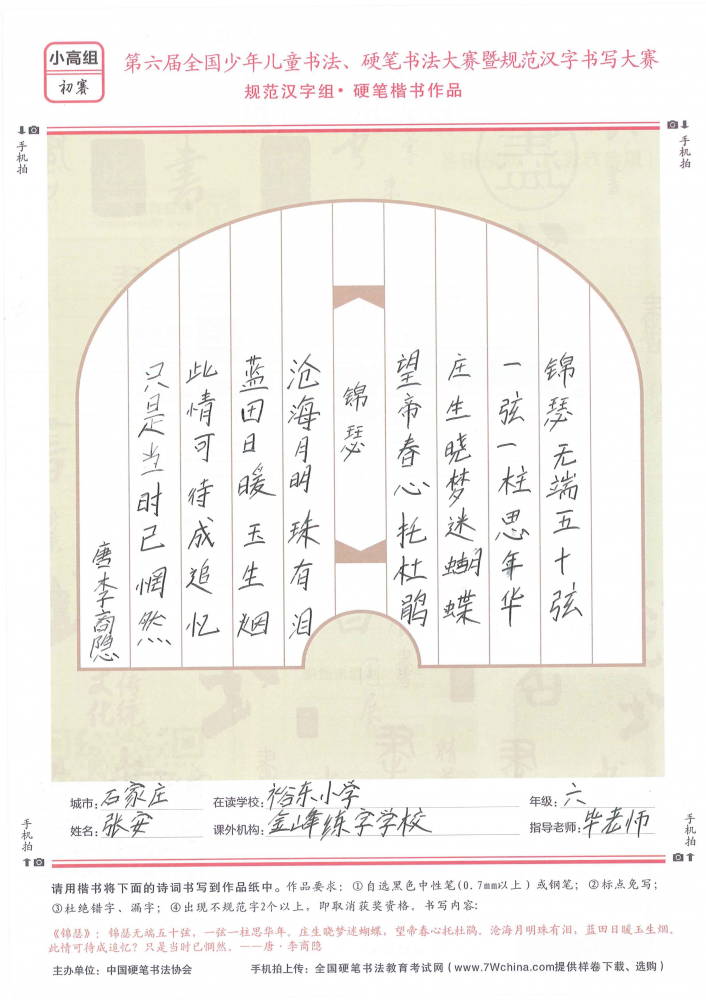 小高组
初赛
第六届全国少年儿童书法、硬笔书法大赛暨规范汉字书写大赛
规范汉字组·硬笔楷书作品
手机拍
手机拍
锦瑟无端五十弦
一弦一柱思年华
庄生晓梦迷蝴蝶
望帝春心托杜鹃
锦瑟
沧海月明珠有泪
蓝田日暖玉生烟
此情可待成追忆
只是当时已惘然
唐李商隐
城市:石家庄 在读学校:裕东小学 年级:六
姓名:张安 课外机构:金峰练字学校 指导老师:毕老师
手机拍
手机拍
请用楷书将下面的诗词书写到作品纸中。作品要求:①自选黑色中性笔(0.7mm以上)或钢笔;②标点免写;
③杜绝错字、漏字;④出现不规范字2个以上,即取消获奖资格。书写内容:
《锦瑟》:锦瑟无端五十弦,一弦一柱思华年。庄生晓梦迷蝴蝶,望帝春心托杜鹃。沧海月明珠有泪,蓝田日暖玉生烟。
此情可待成追忆?只是当时已惘然。——唐·李商隐
主办单位:中国硬笔书法协会 手机拍上传:全国硬笔书法教育考试网(www.7Wchina.com提供样卷下载、选购)